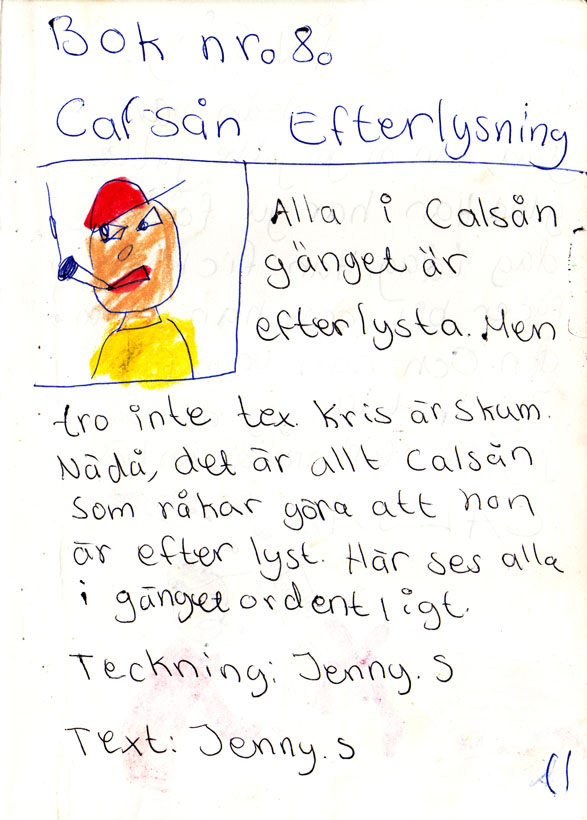 Bok nr. 8.
Calsån Efterlysning
Alla i Calsån
gänget är
efterlysta. Men
tro inte tex. Kris är skum.
Nädå, det är allt Calsån
som råkar göra att hon
är efter lyst. Här ses alla
i gänget ordentligt.
Teckning: Jenny. S
Text: Jenny. S